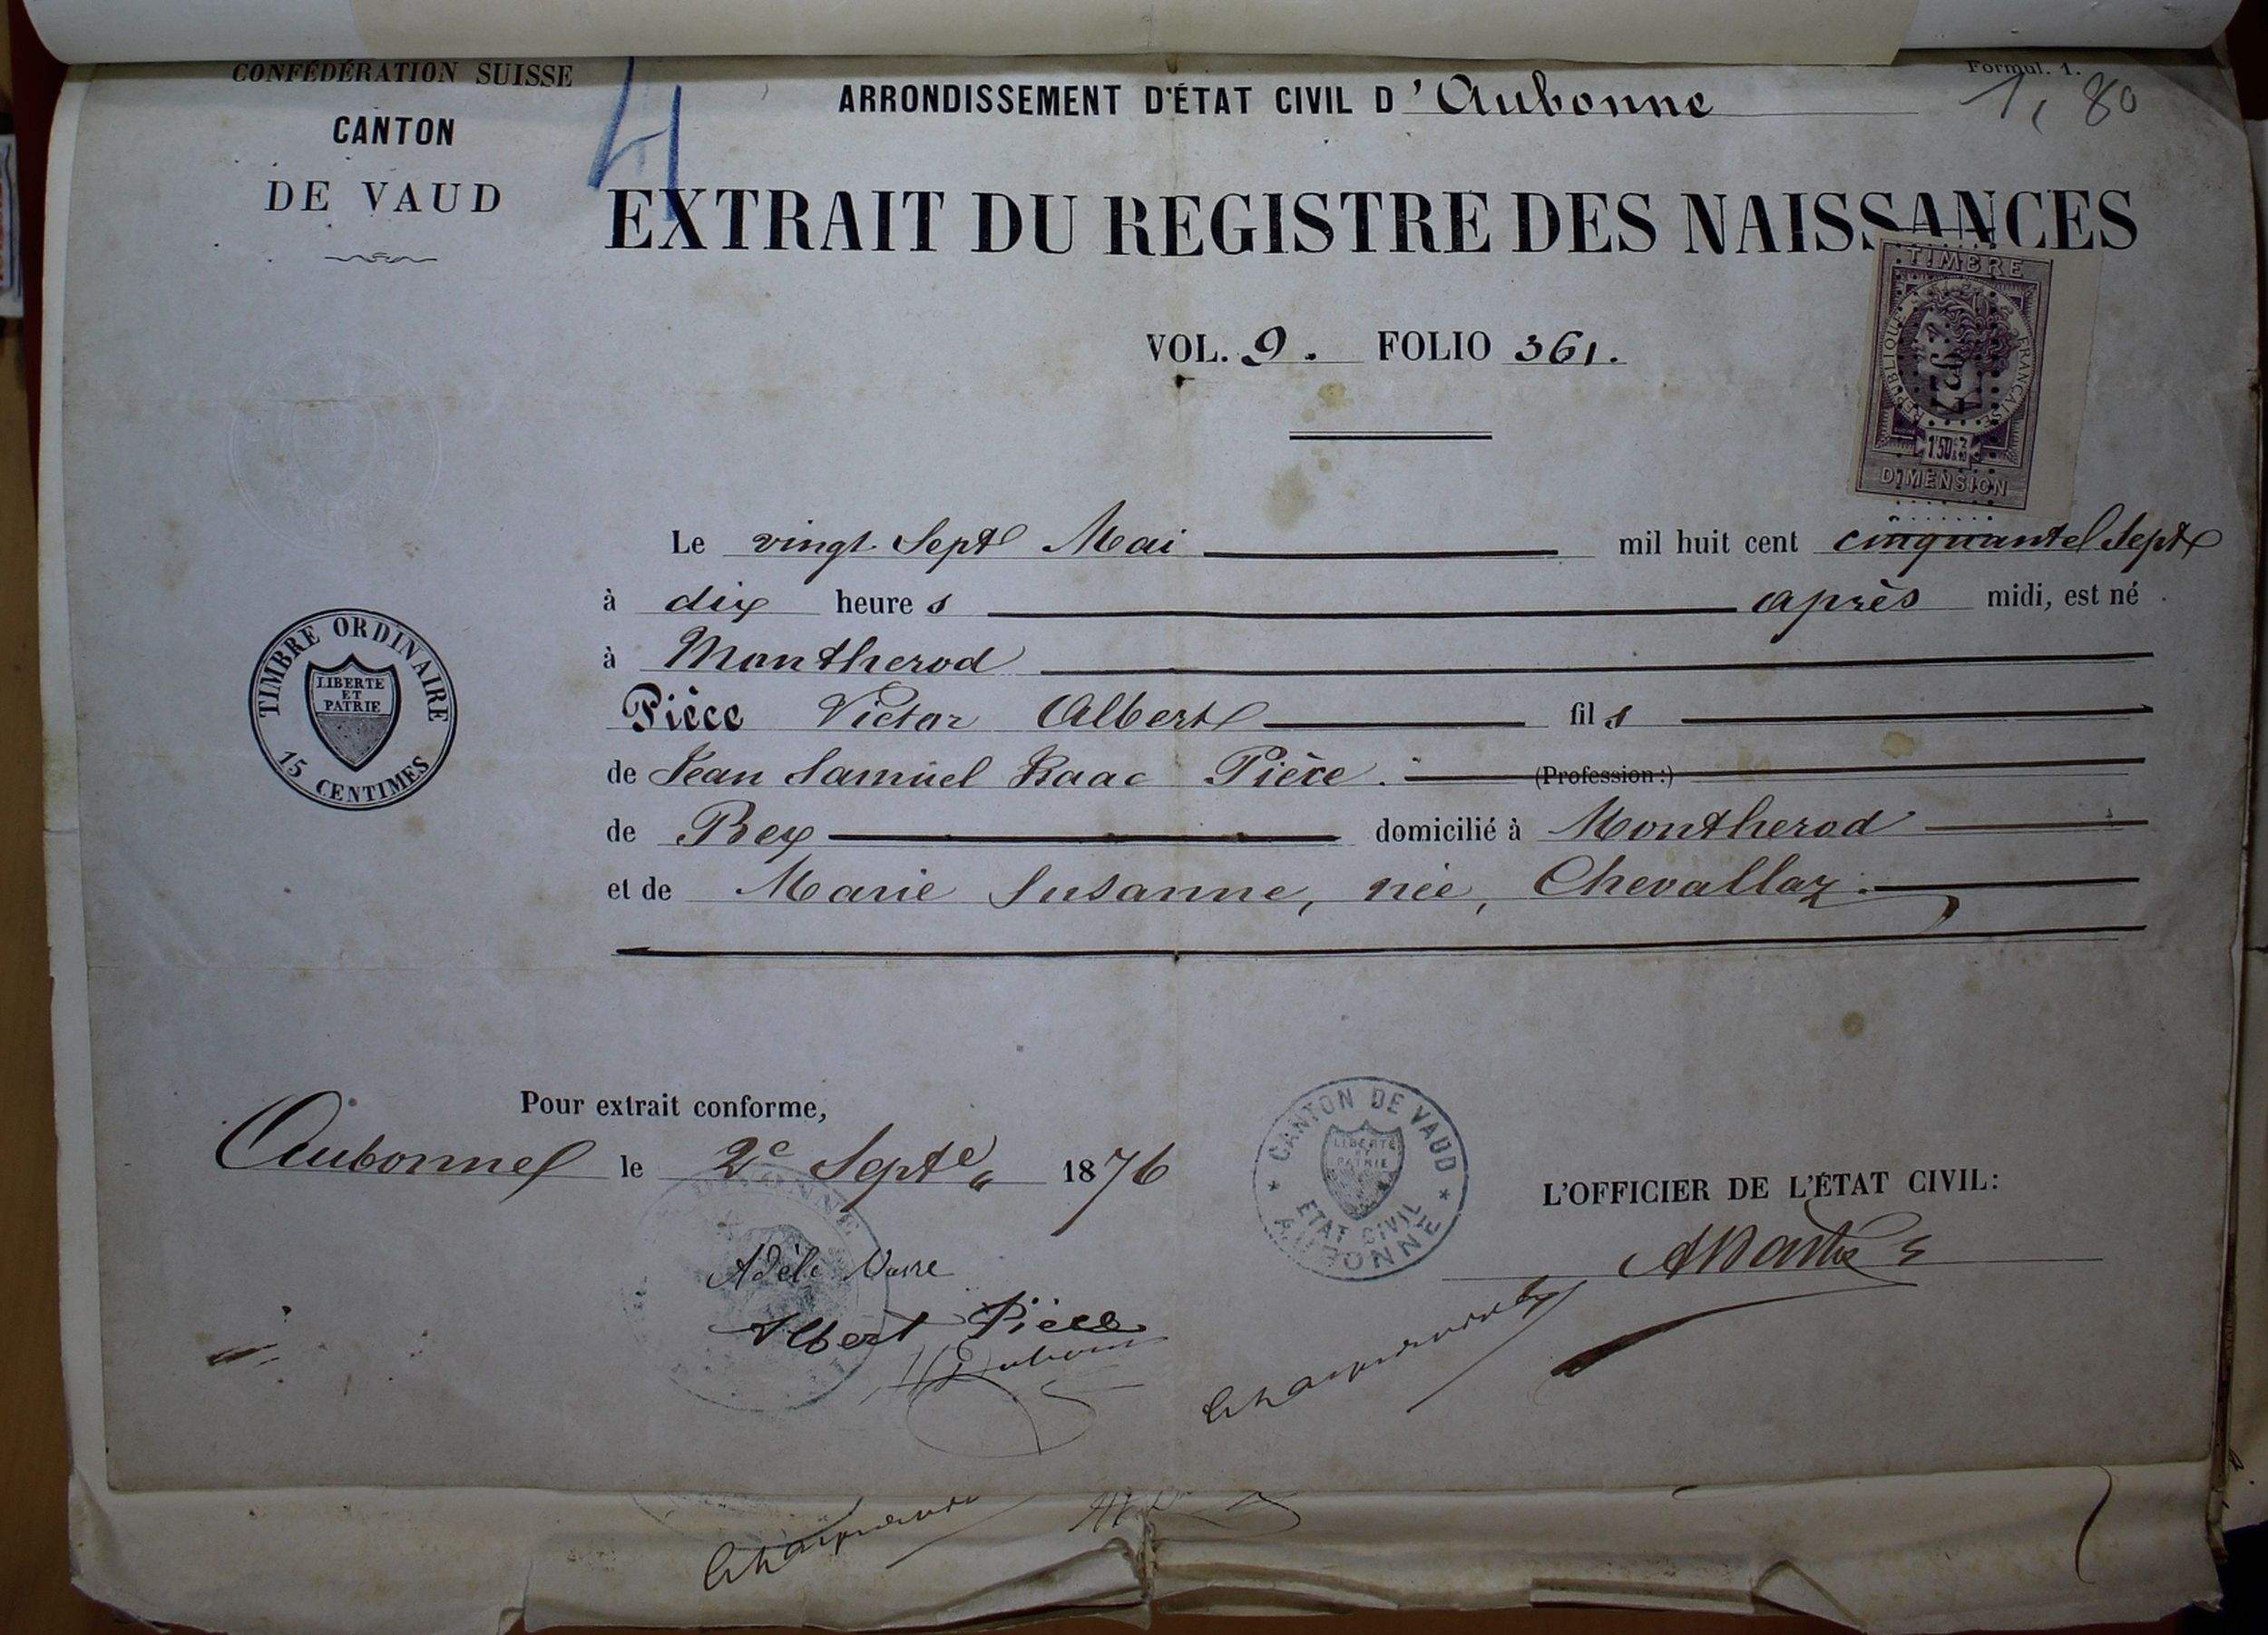 CONFÉDÉRATION SUISSE
CANTON
DE VAUD
4
Formul. 1.
1,80
ARRONDISSEMENT D'ÉTAT CIVIL D'Aubonne
EXTRAIT DU REGISTRE DES NAISSANCES
VOL. 9. FOLIO 361.
TIMBRE
RÉPUBLIQUE FRANÇAISE
1F50
DIMENSION
Le vingt Sept Mai mil huit cent cinquante Sept
à dix heures après midi, est né
à Montherod
Pièce Victor Albert fils
de Jean Samuel Isaac Pièce. (Profession:)
de Bex domicilié à Montherod
et de Marie Susanne, née, Chevallaz.
TIMBRE ORDINAIRE
LIBERTE
ET
PATRIE
15 CENTIMES
Pour extrait conforme,
Aubonne le 2e Septe 1876
CANTON DE VAUD
LIBERTE
ET
PATRIE
ETAT CIVIL
AUBONNE
L'OFFICIER DE L'ÉTAT CIVIL:
Adèle
Albert Pièce